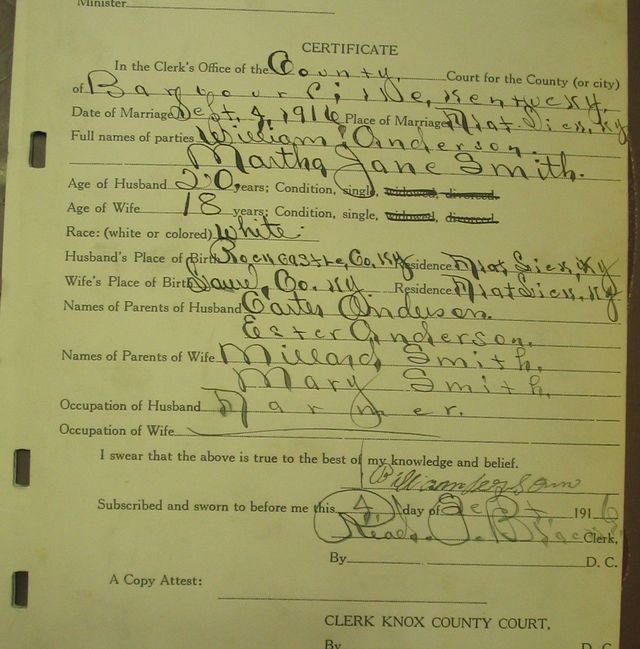 Minister
CERTIFICATE
In the Clerk's Office of the County, Court for the County (or city)
of Barbourville, Kentucky.
Date of Marriage Sept, 4, 1916 Place of Marriage Flat Lick, Ky
Full names of parties William Anderson.
Martha Jane Smith.
Age of Husband 20, years; Condition, single, widowed, divorced.
Age of Wife 18 years; Condition, single, widowed, divorced.
Race: (white or colored) White.
Husband's Place of Birth Rockcastle, Co, Ky Residence Flat Lick, Ky
Wife's Place of Birth Laurel, Co. Ky. Residence Flat Lick, Ky
Names of Parents of Husband Carter Anderson.
Ester Anderson.
Names of Parents of Wife Millard Smith.
Mary Smith.
Occupation of Husband Farmer.
Occupation of Wife
I swear that the above is true to the best of my knowledge and belief.
Subscribed and sworn to before me this 4 day of Sept 1916
Read Clerk,
By D. C.
A Copy Attest:
CLERK KNOX COUNTY COURT,
By D. C.